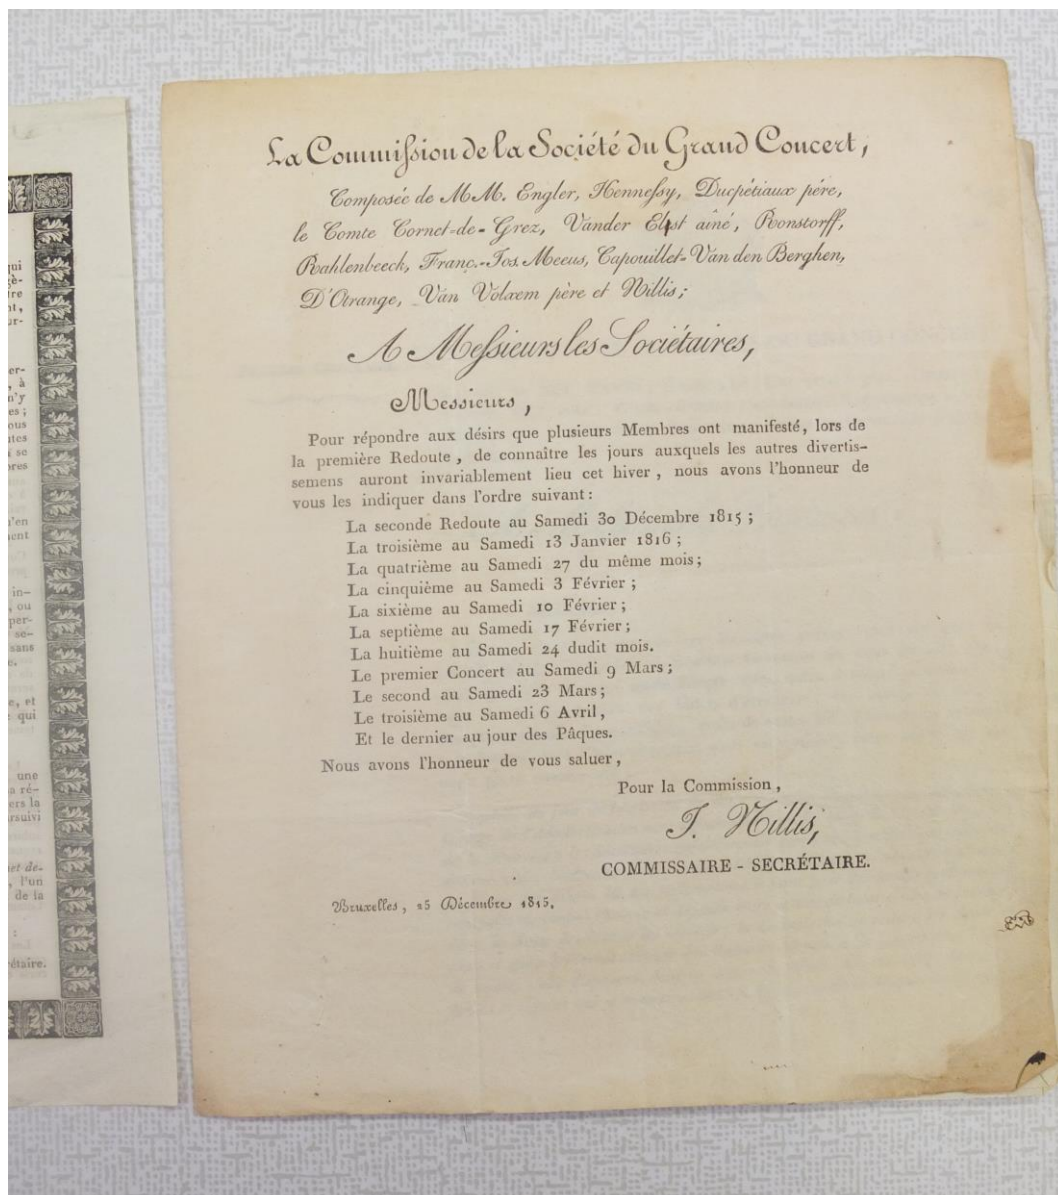 La Commission de la Société du Grand Concert,
Composée de MM. Engler, Hennessy, Ducpétiaux pére,
le Comte Cornet-de-Grez, Vander Elst aîné, Ronstorff,
Rahlenbeeck, Franç.-Jos. Meeus, Capouillet-Van den Berghen,
D'Otrange, Van Volxem père et Nillis;
A Messieurs les Sociétaires,
Messieurs,
Pour répondre aux désirs que plusieurs Membres ont manifesté, lors de
la première Redoute, de connaître les jours auxquels les autres divertis-
semens auront invariablement lieu cet hiver, nous avons l'honneur de
vous les indiquer dans l'ordre suivant:
La seconde Redoute au Samedi 30 Décembre 1815;
La troisième au Samedi 13 Janvier 1816;
La quatrième au Samedi 27 du même mois;
La cinquième au Samedi 3 Février;
La sixième au Samedi 10 Février;
La septième au Samedi 17 Février;
La huitième au Samedi 24 dudit mois.
Le premier Concert au Samedi 9 Mars;
Le second au Samedi 23 Mars;
Le troisième au Samedi 6 Avril,
Et le dernier au jour des Pâques.
Nous avons l'honneur de vous saluer,
Pour la Commission,
J. Nillis,
COMMISSAIRE - SECRÉTAIRE.
Bruxelles, 25 Décembre 1815.
qui
gè-
ire
nt,
ur-
er-
, à
n'y
es;
ous
utes
se
bres
u'en
ment
in-
, ou
per-
se-
sans
e.
e, et
qui
une
a ré-
ers la
rsuivi
et de-
, l'un
de la
:
étaire.